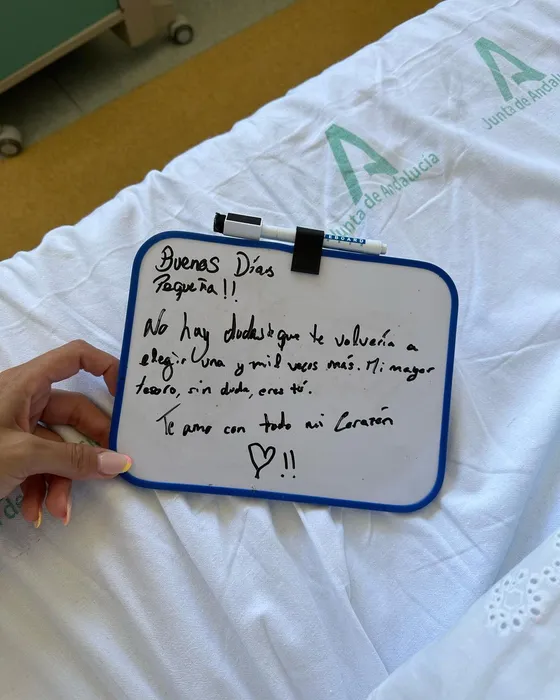 Junta de Andalucía
Junta de Andalucía
Buenos Días
Pequeña!!
No hay dudas de que te volvería a
elegir una y mil veces más. Mi mayor
tesoro, sin duda, eres tú.
Te amo con todo mi Corazón
!!